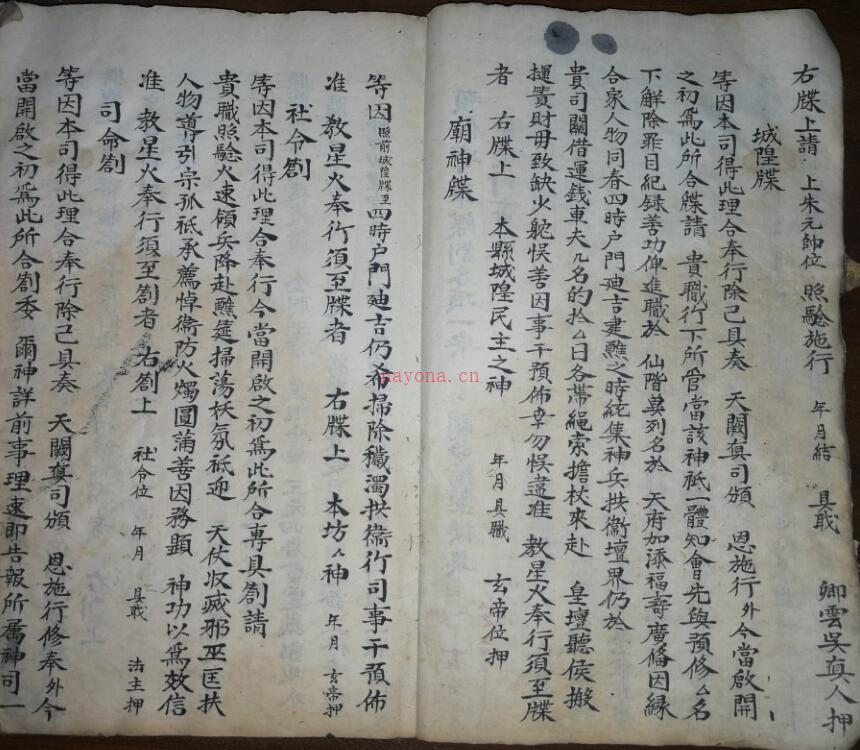 右牒上請　上朱元帥位　照驗施行　年月結　具職　卿雲吳真人押
城隍牒
等因本司得此理合奉行除已具奏　天闕真司頒　恩施行外今當啟開
之初為此所合牒請　貴職行下所管當該神祇一體知會先與預修厶名
下解除罪目紀録善功俾進職於　仙階莫列名於　天府如添福壽广偹因緣
合家人物同春四時户門廸吉建醮之時統集神兵拱衛壇界仍於
貴司關借運錢車夫几名的於厶日各帶繩索擔杖來赴　皇壇聽侯搬
運責財毋致缺少躭悮善因事干預佈幸勿悮違准　教星火奉行須至牒
者　右牒上　本縣城隍民主之神　年月具職　玄帝位押
廟神牒
等因照前城隍牒至四時户門廸吉仍希掃除穢濁拱衛行司事干預佈
准　教星火奉行須至牒者　右牒上　本坊厶神　年月　玄帝押
社令劄
等因本司得此理合奉行今當開啟之初為此所合專具劄請
貴職照驗火速領兵降赴醮筵掃蕩妖氛祗迎　天仗收滅邪巫匡扶
人物導引宗孤祗承薦悼衛防火燭圓滿善因務顯　神功以為效信
准　教星火奉行須至劄者　右劄上　社令位　年月　具戢　法主押
司命劄
等因本司得此理合奉行除已具奏　天闕真司頒　恩施行修奉外今
當開啟之初為此所合劄委　爾神詳前事理速即告報所属神司一
nayona.cn